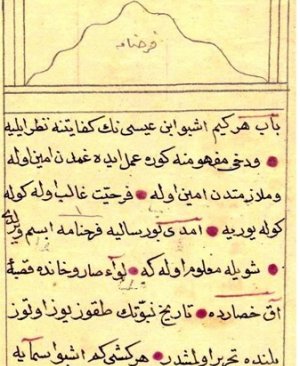 فرحنامه
باب هركیم اشبو ابن عیسی نك كفایتنه نظر ایلیه
ودخی مفهومنه كوره عمل ایده غمدن امین اوله
وملازمتدن امین اوله فرحیّت غالب اوله كوله
كوله یوریه امدی بو رسالیه فرحنامه اسم
شویله معلوم اوله كه لواء صاروخانده قصبۀ
آق حصارده تاریخ نبوّتك طقوز یوز اوتوز
یلنده تحریر اولمشدر هر كشی كم اشبو اسمایه